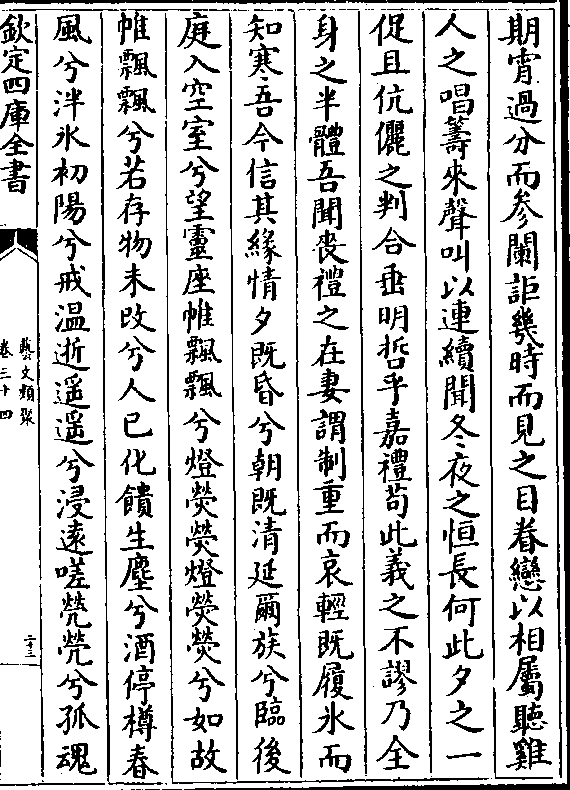 期宵過分而參闌詎幾時而見之目眷戀以相屬聽雞
人之唱籌來聲叫以連續聞冬夜之恒長何此夕之一
促且伉儷之判合垂明哲乎嘉禮苟此義之不謬乃全
身之半體吾聞喪禮之在妻謂制重而哀輕既履氷而
知寒吾今信其緣情夕既昏兮朝既清延爾族兮臨後
庭入空室兮望靈座帷飄飄兮燈熒熒燈熒熒兮如故
帷飄飄兮若存物未改兮人已化饋生塵兮酒停樽春
風兮泮氷初陽兮戒溫逝遥遥兮浸逺嗟煢煢兮孤魂
欽定四庫全書
藝文類聚
卷三十四
二十三